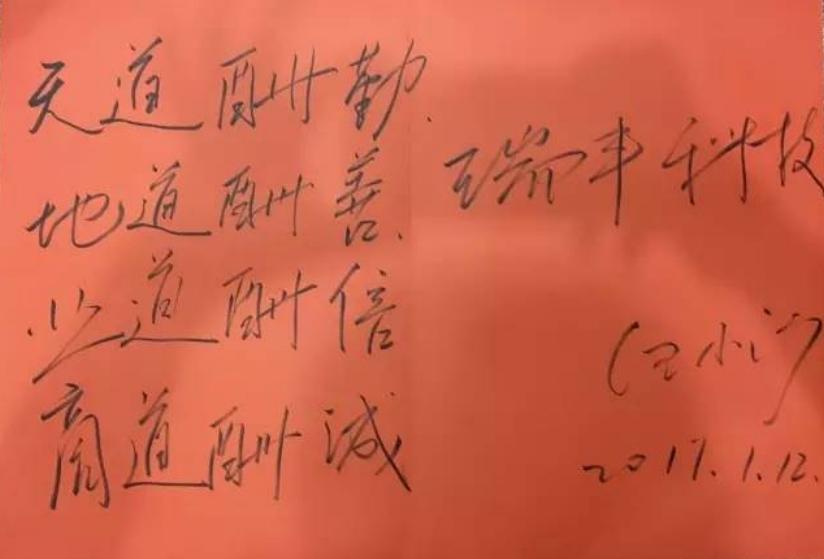 天道酬勤.
地道酬善.
业道酬信
商道酬诚
瑞丰科技
汪小
2017.1.12.